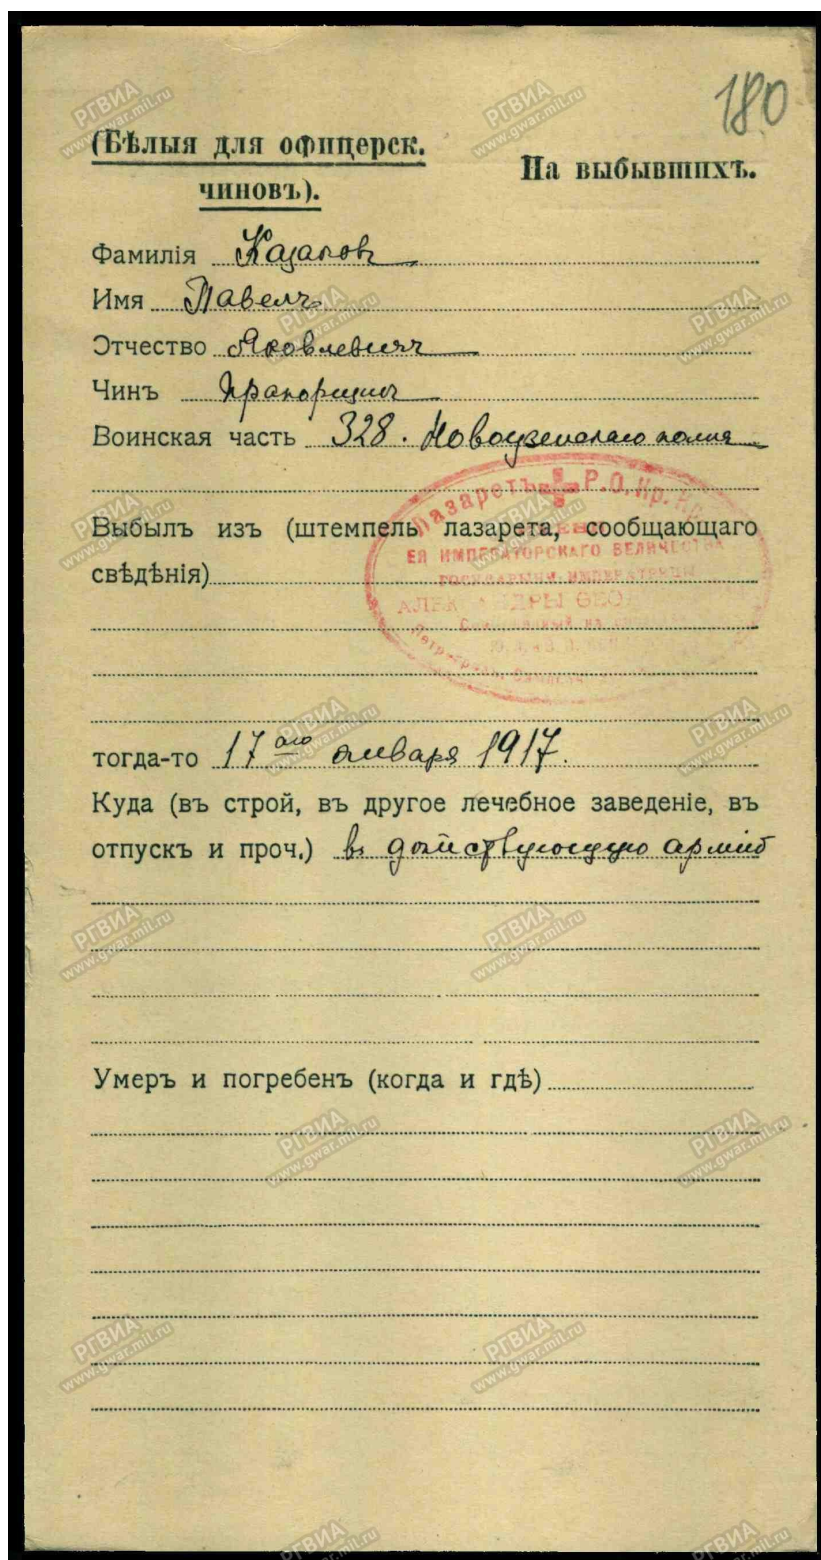 180
(Бѣлыя для офицерск.
чиновъ).
На выбывшихъ.
Фамилія Казаковъ
Имя Павелъ
Отчество Яковлевичъ
Чинъ Прапорщикъ
Воинская часть 328. Новоузенскаго полка
Лазаретъ Р.О.Кр.Кр.
Выбылъ изъ (штемпель лазарета, сообщающаго
ЕЯ ИМПЕРАТОРСКАГО ВЕЛИЧЕСТВА
свѣдѣнія)
ГОСУДАРЫНИ ИМПЕРАТРИЦЫ
АЛЕКСАНДРЫ ѲЕО
тогда-то 17ого января 1917.
Куда (въ строй, въ другое лечебное заведеніе, въ
отпускъ и проч.) въ дѣйствующую армію
Умеръ и погребенъ (когда и гдѣ)
РГВИА
www.gwar.mil.ru